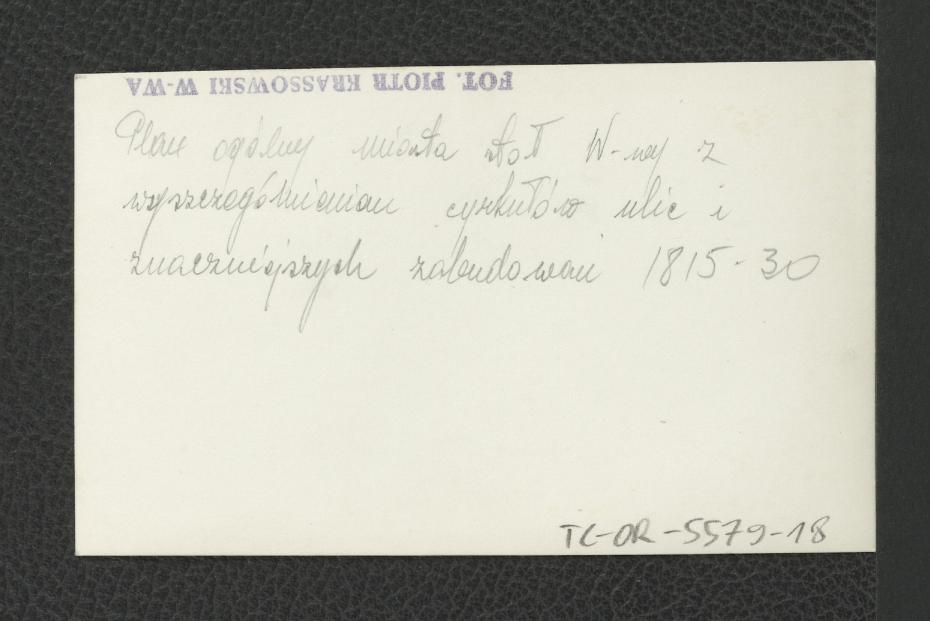 FOT. PIOTR KRASSOWSKI W-WA
Plan ogólny miasta stoł W-wy z
wyszczególnieniem cyrkułów ulic i
znaczniejszych zabudowań 1815-30
TC-OR-5579-18